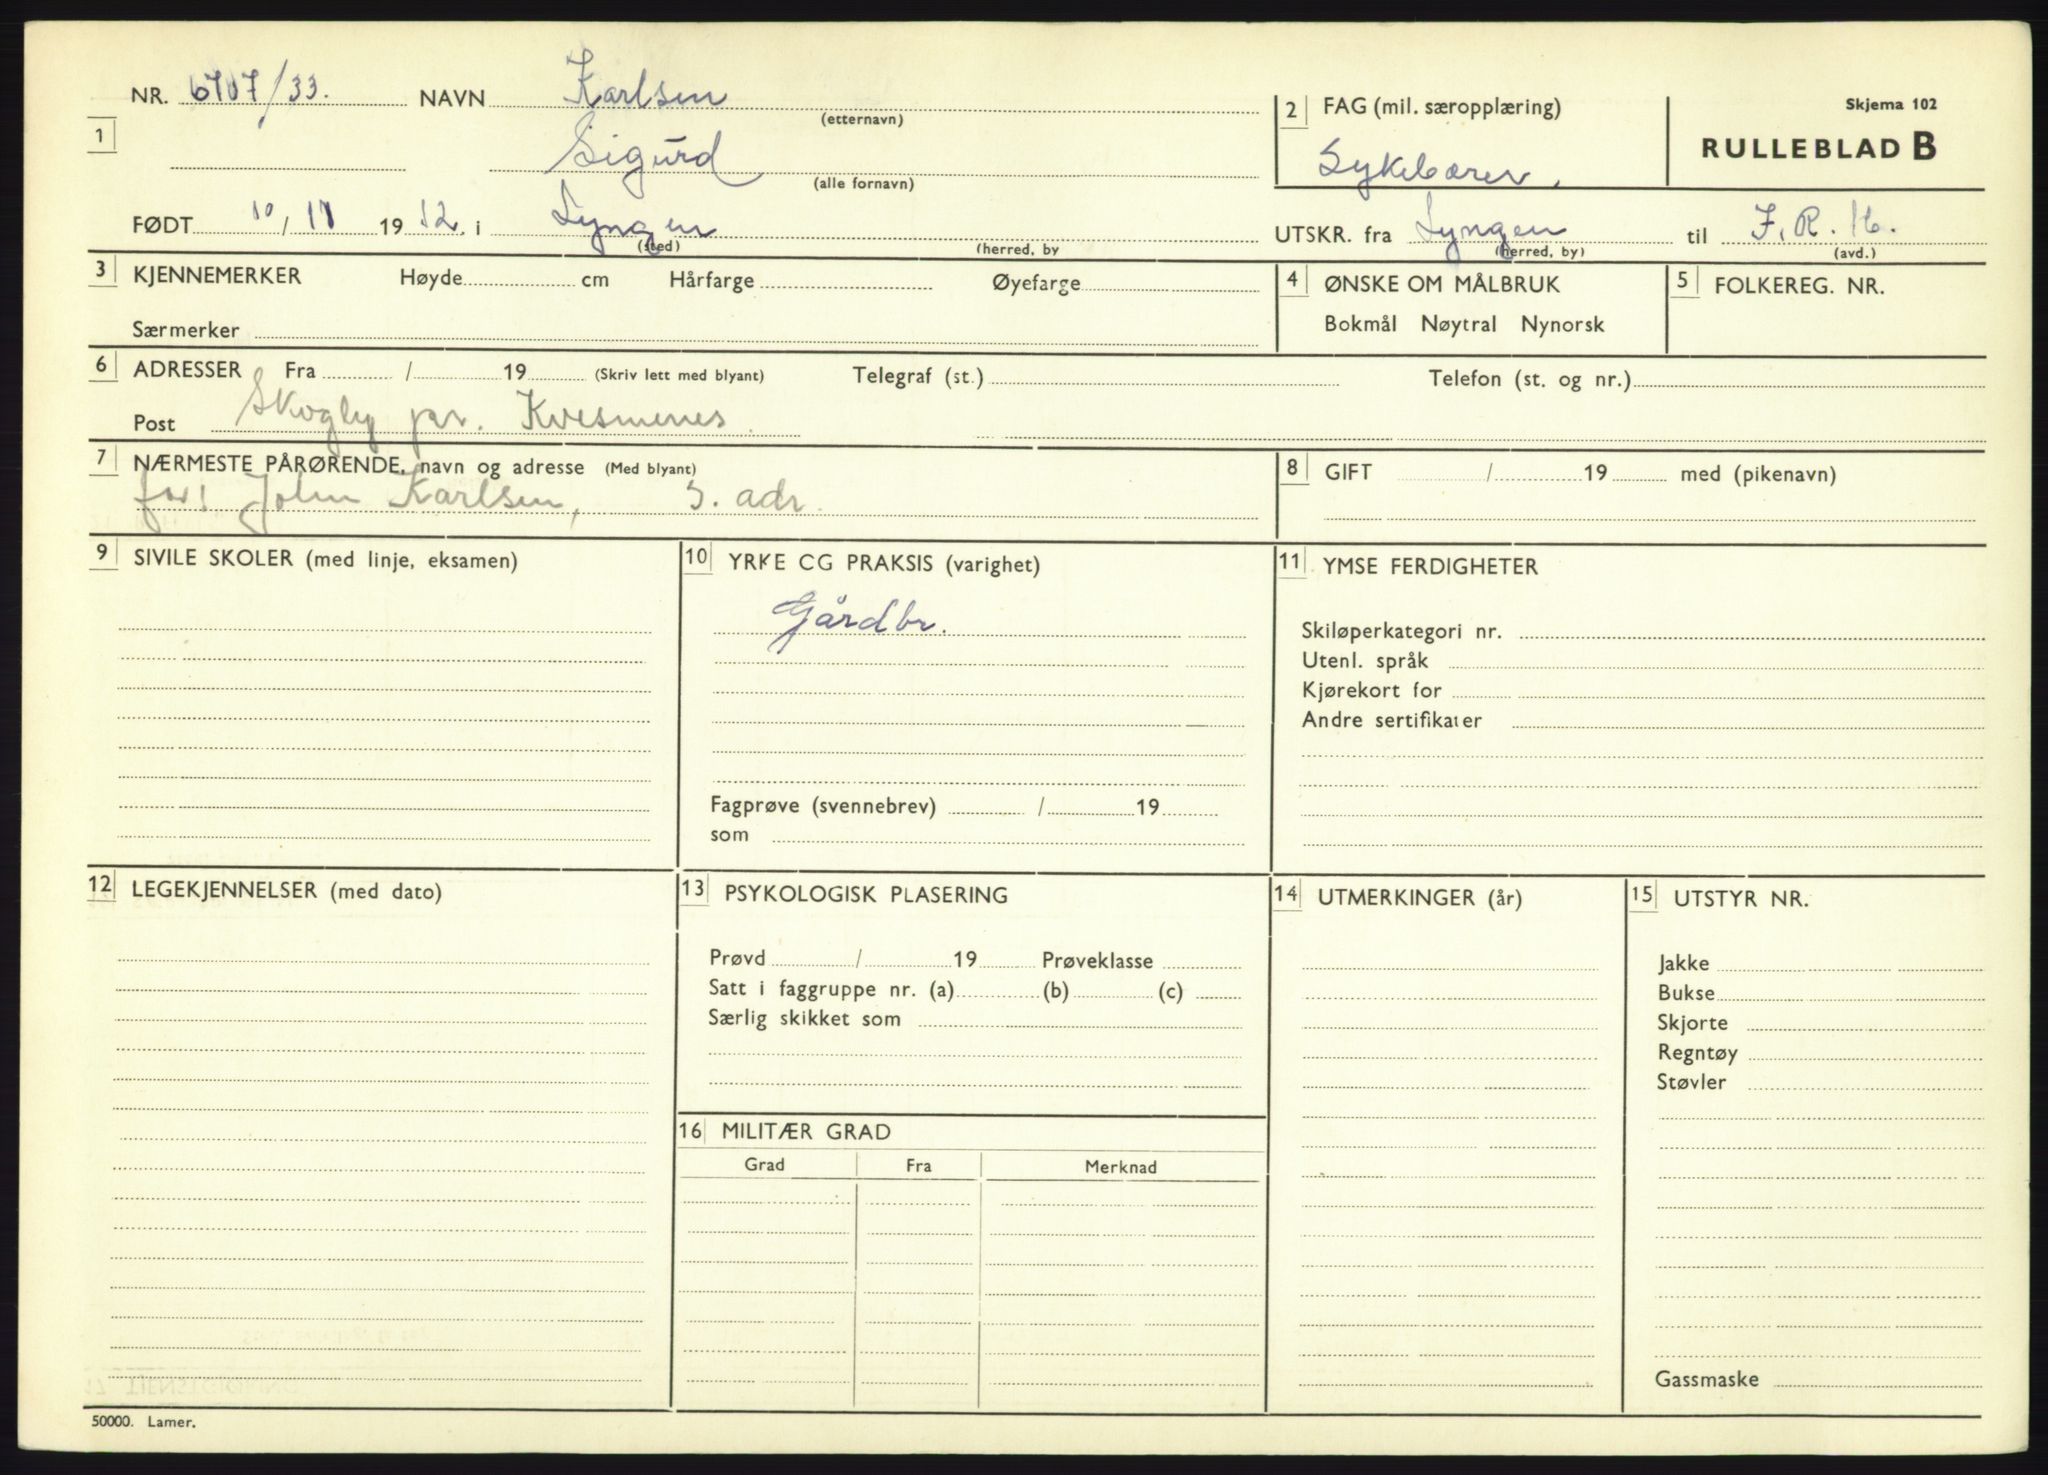 NR. 6707/33. NAVN Karlsen
(etternavn)
1
Sigurd
(alle fornavn)
FØDT 10/11 1912. i Lyngen
(sted) (herred, by
2 FAG (mil. særopplæring)
Sykebærer.
Skjema 102
RULLEBLAD B
UTSKR. fra Lyngen til F.R.16.
(herred, by) (avd.)
3 KJENNEMERKER Høyde cm Hårfarge Øyefarge
Særmerker
4 ØNSKE OM MÅLBRUK
Bokmål Nøytral Nynorsk
5 FOLKEREG. NR.
6 ADRESSER Fra / 19 (Skriv lett med blyant) Telegraf (st.) Telefon (st. og nr.)
Post Skogly pr. Kvesmenes
7 NÆRMESTE PÅRØRENDE, navn og adresse (Med blyant)
far: John Karlsen, s. adr.
8 GIFT / 19 med (pikenavn)
9 SIVILE SKOLER (med linje, eksamen)
10 YRKE CG PRAKSIS (varighet)
Gårdbr.
Fagprøve (svennebrev) / 19
som
11 YMSE FERDIGHETER
Skiløperkategori nr.
Utenl. språk
Kjørekort for
Andre sertifikater
12 LEGEKJENNELSER (med dato)
13 PSYKOLOGISK PLASERING
Prøvd / 19 Prøveklasse
Satt i faggruppe nr. (a) (b) (c)
Særlig skikket som
14 UTMERKINGER (år)
15 UTSTYR NR.
Jakke
Bukse
Skjorte
Regntøy
Støvler
Gassmaske
16 MILITÆR GRAD
Grad Fra Merknad
50000. Lamer.